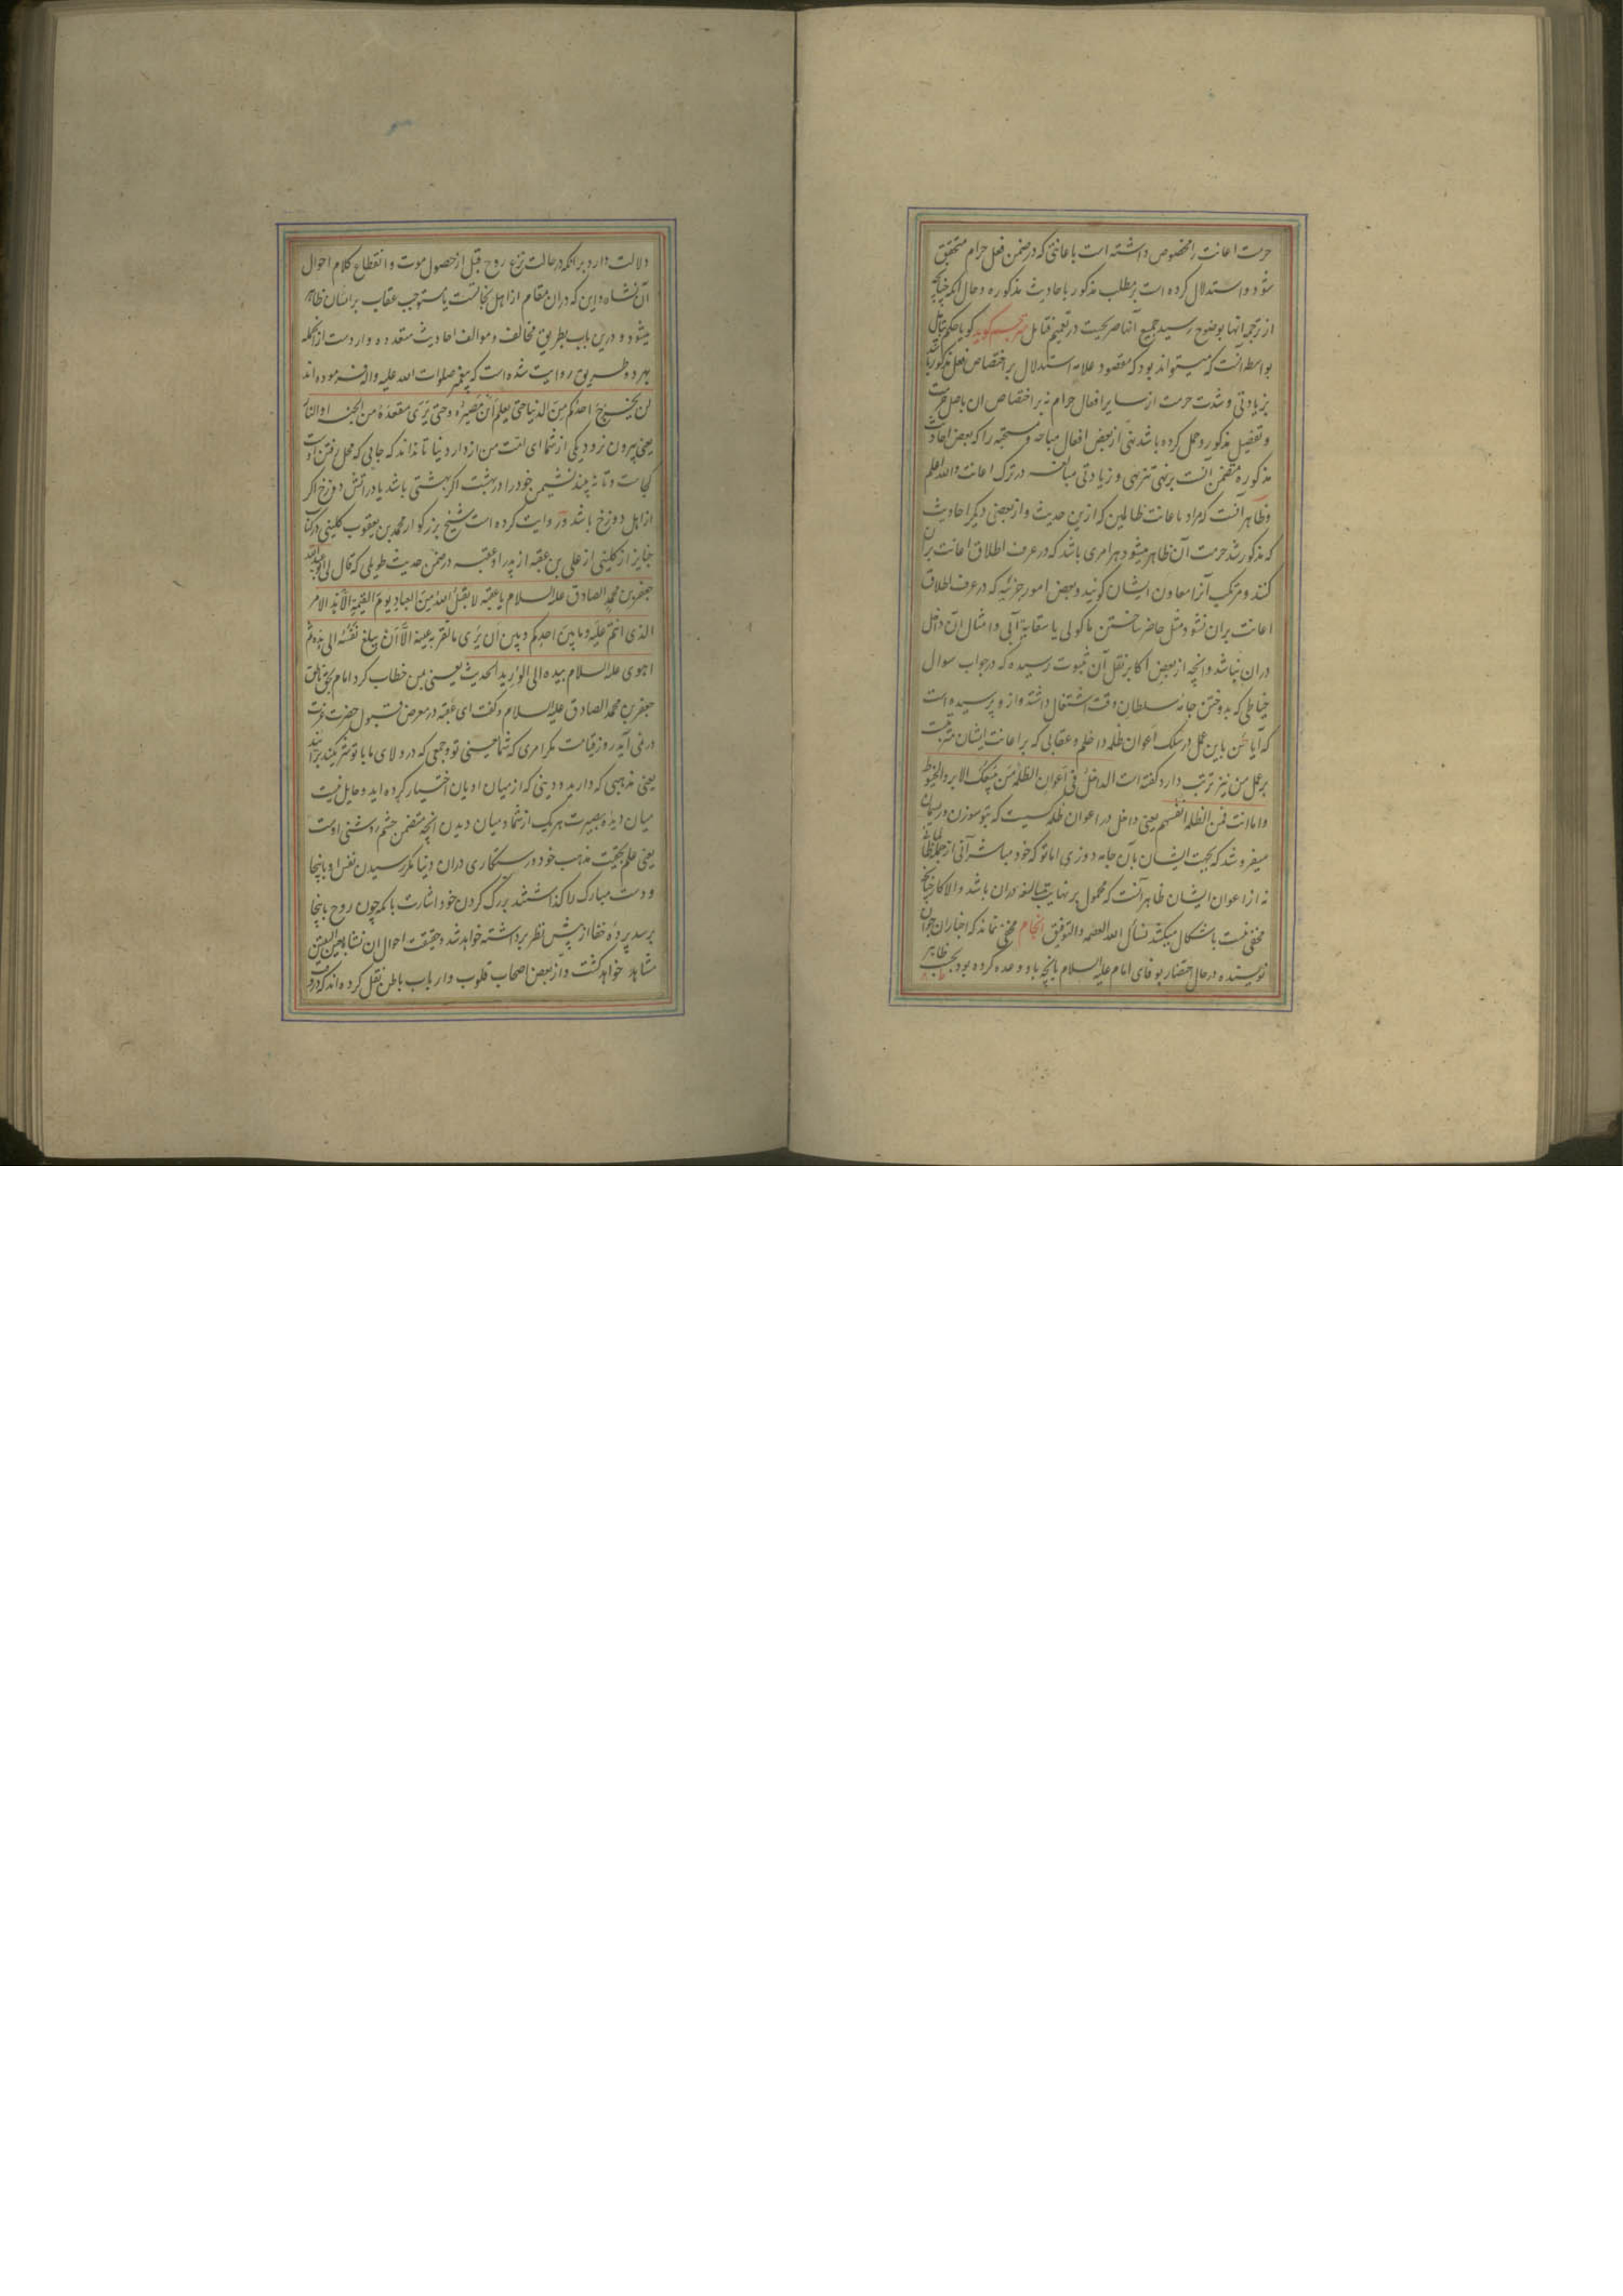 حرمت اعانت را مخصوص داشته است باعانتی که در ضمن فعل حرام متحقق
شود و استدلال کرده است بر مطلب مذکور باحادیث مذکوره و حال آنکه چنانچه
از ترجمه آنها بوضوح رسید جمیع آنها صریحست در تعمیم فتامل مترجم گوید گویا حکم بتامل
بواسطه آنست که میتواند بود که مقصود علامه استدلال بر اختصاص فعل مذکور باشد
بزیادتی و شدت حرمت از سایر افعال حرام نه بر اختصاص ان باصل حرمت
و تفصیل مذکور و حمل کرده باشد نهی از بعض افعال مباحه و مستحبه را که بعض احادیث
مذکوره متضمن آنست بر نهی تنزیهی و زیادتی مبالغه در ترک اعانت والله اعلم
و ظاهر آنست که مراد باعانت ظالمین که ازین حدیث و از بعضی دیگر احادیث
که مذکور شد حرمت آن ظاهر میشود هر امری باشد که در عرف اطلاق اعانت بران
کنند و مرتکب آنرا معاون ایشان گویند و بعض امور جزئیه که در عرف اطلاق
اعانت بران نشود مثل حاضر ساختن ماکولی یا سقایه آبی و امثال آن داخل
دران نباشد و انچه از بعض اکابر نقل آن بثبوت رسیده که در جواب سوال
خیاطی که بدوختن جامه سلطان وقت اشتغال داشته و از و پرسیده است
که آیا من باین عمل در سلک اعوان ظلمه داخلم و عقابی که بر اعانت ایشان مترتبست
بر عمل من نیز ترتب دارد گفته است الداخل فی اعوان الظلمة من یبیعک الابر والخیوط
واما انت فمن الظلمه انفسهم یعنی داخل در اعوان ظلمه کسیست که بتو سوزن و ریسمان
میفروشد که بجهت ایشان بآن جامه دوزی اما تو که خود مباشر آنی از جمله ظالمانی
نه از اعوان ایشان ظاهر آنست که محمول بر نهایت مبالغه دران باشد والا کار چنانچه
مخفی نیست باشکال میکشد نسأل الله العصمه والتوفیق انجام مخفی نماند که اخباران جوان
نویسنده در حال احتضار بوفای امام علیه السلام بانچه باو وعده کرده بود بحسب ظاهر
دلالت دارد برانکه در حالت نزع روح قبل از حصول موت و انقطاع کلام احوال
آن نشاه و این که دران مقام از اهل نجاتست یا مستوجب عقاب بر انسان ظاهر
میشود و درین باب بطریق مخالف و موالف احادیث متعدده واردست ازانجمله
بهر دو طریق روایت شده است که پیغمبر صلوات الله علیه واله فرموده اند
لن یخرج احدکم من الدنیا حتی یعلم این مصیره و حتی یری مقعده من الجنه او النار
یعنی بیرون نرود یکی از شما ای امت من از دار دنیا تا نداند که جایی که محل رفتن اوست
کجاست و تا نه بیند نشیمن خود را در بهشت اگر بهشتی باشد یا در اتش دوزخ اگر
از اهل دوزخ باشد و روایت کرده است شیخ بزرگوار محمد بن یعقوب کلینی در کتاب
جنایز از کلینی از علی بن عقبه از پدر او عقبه در ضمن حدیث طویلی که قال لی ابو عبدالله
جعفر بن محمد الصادق علیه السلام یا عقبه لا یقبل الله من العباد یوم القیمة الا هذا الامر
الذی انتم علیه و ما بین احدکم و بین ان یری ما تقر به عینه الا ان یبلغ نفسه الی هذه ثم
اهوی علیه السلام بیده الی الورید الحدیث یعنی بمن خطاب کرد امام بحق ناطق
جعفر بن محمد الصادق علیه السلام و گفت ای عقبه در معرض قبول حضرت عزت
در نمی آید روز قیامت مگر امری که شما یعنی تو و جمعی که در ولای ما با تو شریکند برانید
یعنی مذهبی که دارید و دینی که از میان ادیان اختیار کرده اید و حایل نیست
میان دیده بصیرت هر یک از شما و میان دیدن انچه متضمن چشم روشنی اوست
یعنی علم بحقیت مذهب خود و رستگاری دران دنیا مگر رسیدن نفس او باینجا
و دست مبارک را گذاشتند بر رک گردن خود اشارت بانکه چون روح باینجا
برسد پرده خفا از پیش نظر برداشته خواهد شد و حقیقت احوال ان نشا بعین الیقین
مشاهد خواهد گشت و از بعض اصحاب قلوب و ارباب باطن نقل کرده اند که در وقت